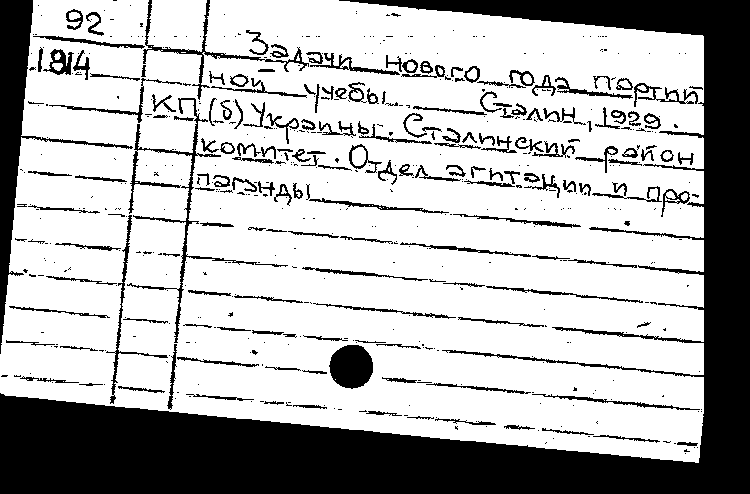 92
1814
Задачи нового года партий
ной учебы Сталин, 1929.
КП(б) Украины. Сталинский район
комитет. Отдел агитации и про-
паганды